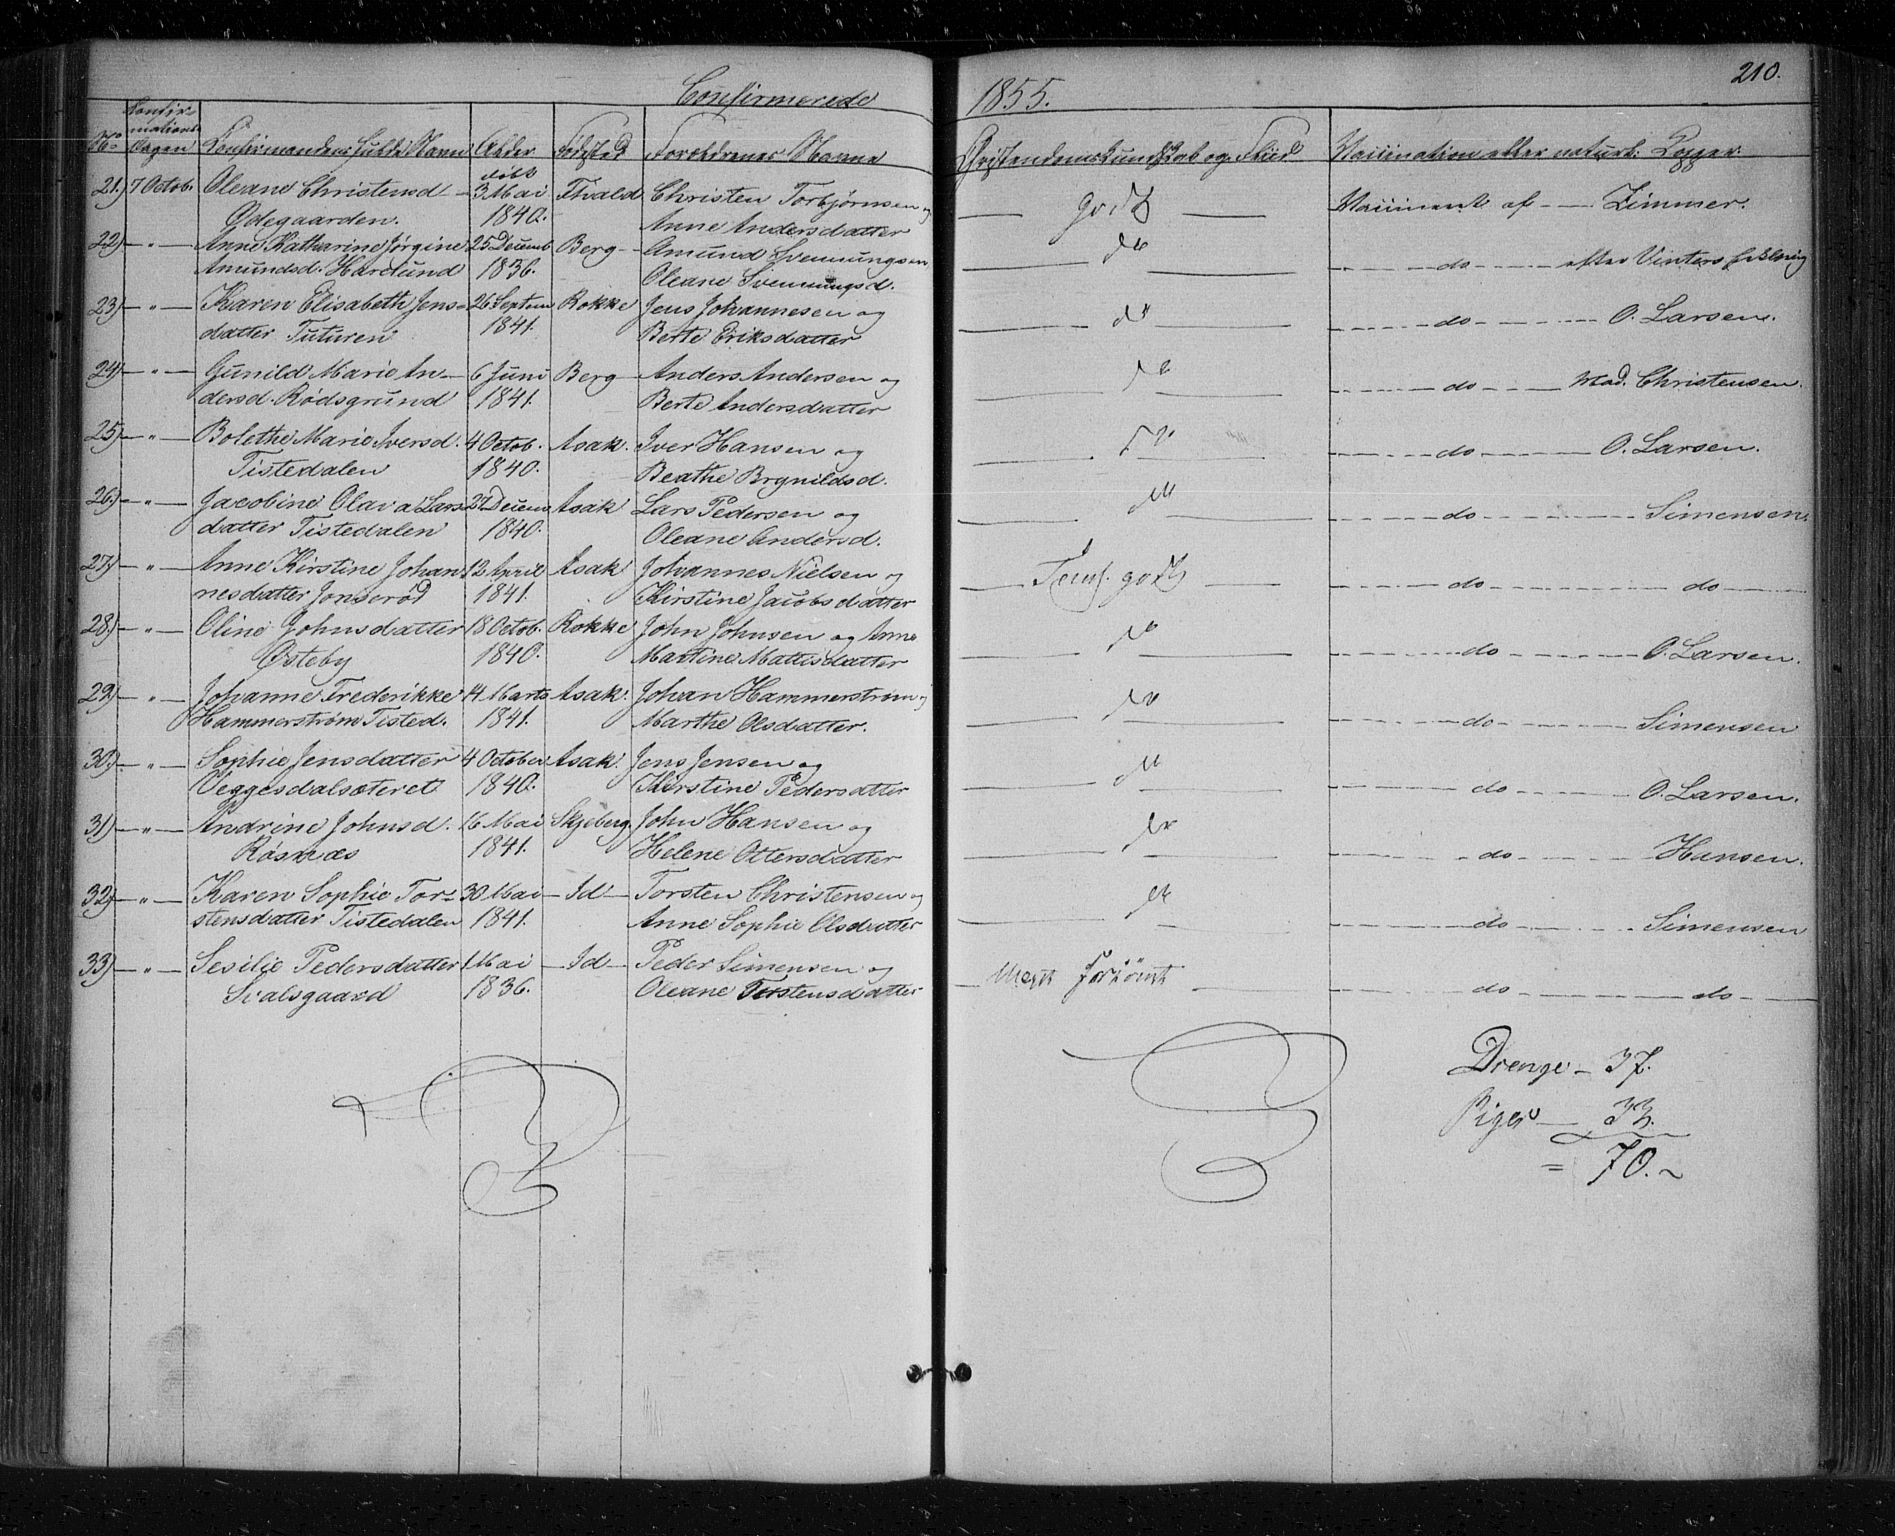 210.
Confirmerede 1855.
No Confirmations Dagen Confirmandens fulde Navn Alder Fødested Forældrenes Navne Christendomskundskab og Fliid Vaccination eller naturl: Kopper.
døbt
21.) 7 Octob. Oleane Christensd 3 Mai Christen Torbjørnsen og godt Vaccineret af Zimmer.
Ødegaarden. 1840. Anne Andersdatter
22) " Anne Katharine Jørgine 25 Decemb Berg Amund Svennungsen do do efter Vinters
Amundsd. Harelund 1836. Oleane Svennungsd.
23) " Karen Elisabeth Jens- 26 Septem Rokke Jens Johannesen og do do O. Larsen.
datter Tuturen 1841. Berte Eriksdatter
24) " Gunild Marie An- 6 Juni Berg Anders Andersen og do do Mad. Christensen.
dersd. Rødsgrund 1841. Berte Andersdatter
25) " Bolethe Marie Iversd. 4 Octob. Asak. Iver Hansen og do do O. Larsen.
Tistedalen 1840. Beathe Brynildsd.
26) " Jacobine Olava Lars 27 Decem Asak Lars Pedersen og do do Simensen.
datter Tistedalen 1840. Oleane Andersd.
27) " Anne Kirstine Johan 12 April Asak Johannes Nielsen og Tem. godt do do
nesdatter Jonserød 1841. Kirstine Jacobsdatter
28) " Oline Johnsdatter 18 Octob. Rokke John Johnsen og Anne do do O. Larsen.
Østeby 1840. Martine Mattisdatter
29) " Johanne Frederikke 14 Marts Asak. Johan Hammerstrøm og do do Simensen
Hammerstrøm Tisted. 1841. Marthe Olsdatter.
30) " Sophie Jensdatter 4 October Asak. Jens Jensen og do do O. Larsen.
Veggesdalsæteret 1840. Kirstine Pedersdatter
31) " Andrine Johnsd. 16 Mai Skjeberg. John Hansen og do do Hansen.
Røsnæs 1841. Helene Ottersdatter
32) " Karen Sophie Tor- 30 Mai Id Torsten Christensen og do do Simensen
stensdatter Tistedalen 1841. Anne Sophie Olsdatter
33) " Sesilie Pedersdatter 1 Mai Id Peder Simensen og Meget forsømt do do
Svalsgaard 1836. Oleane Torstensdatter
Drenge - 37.
Piger - 33.
= 70.